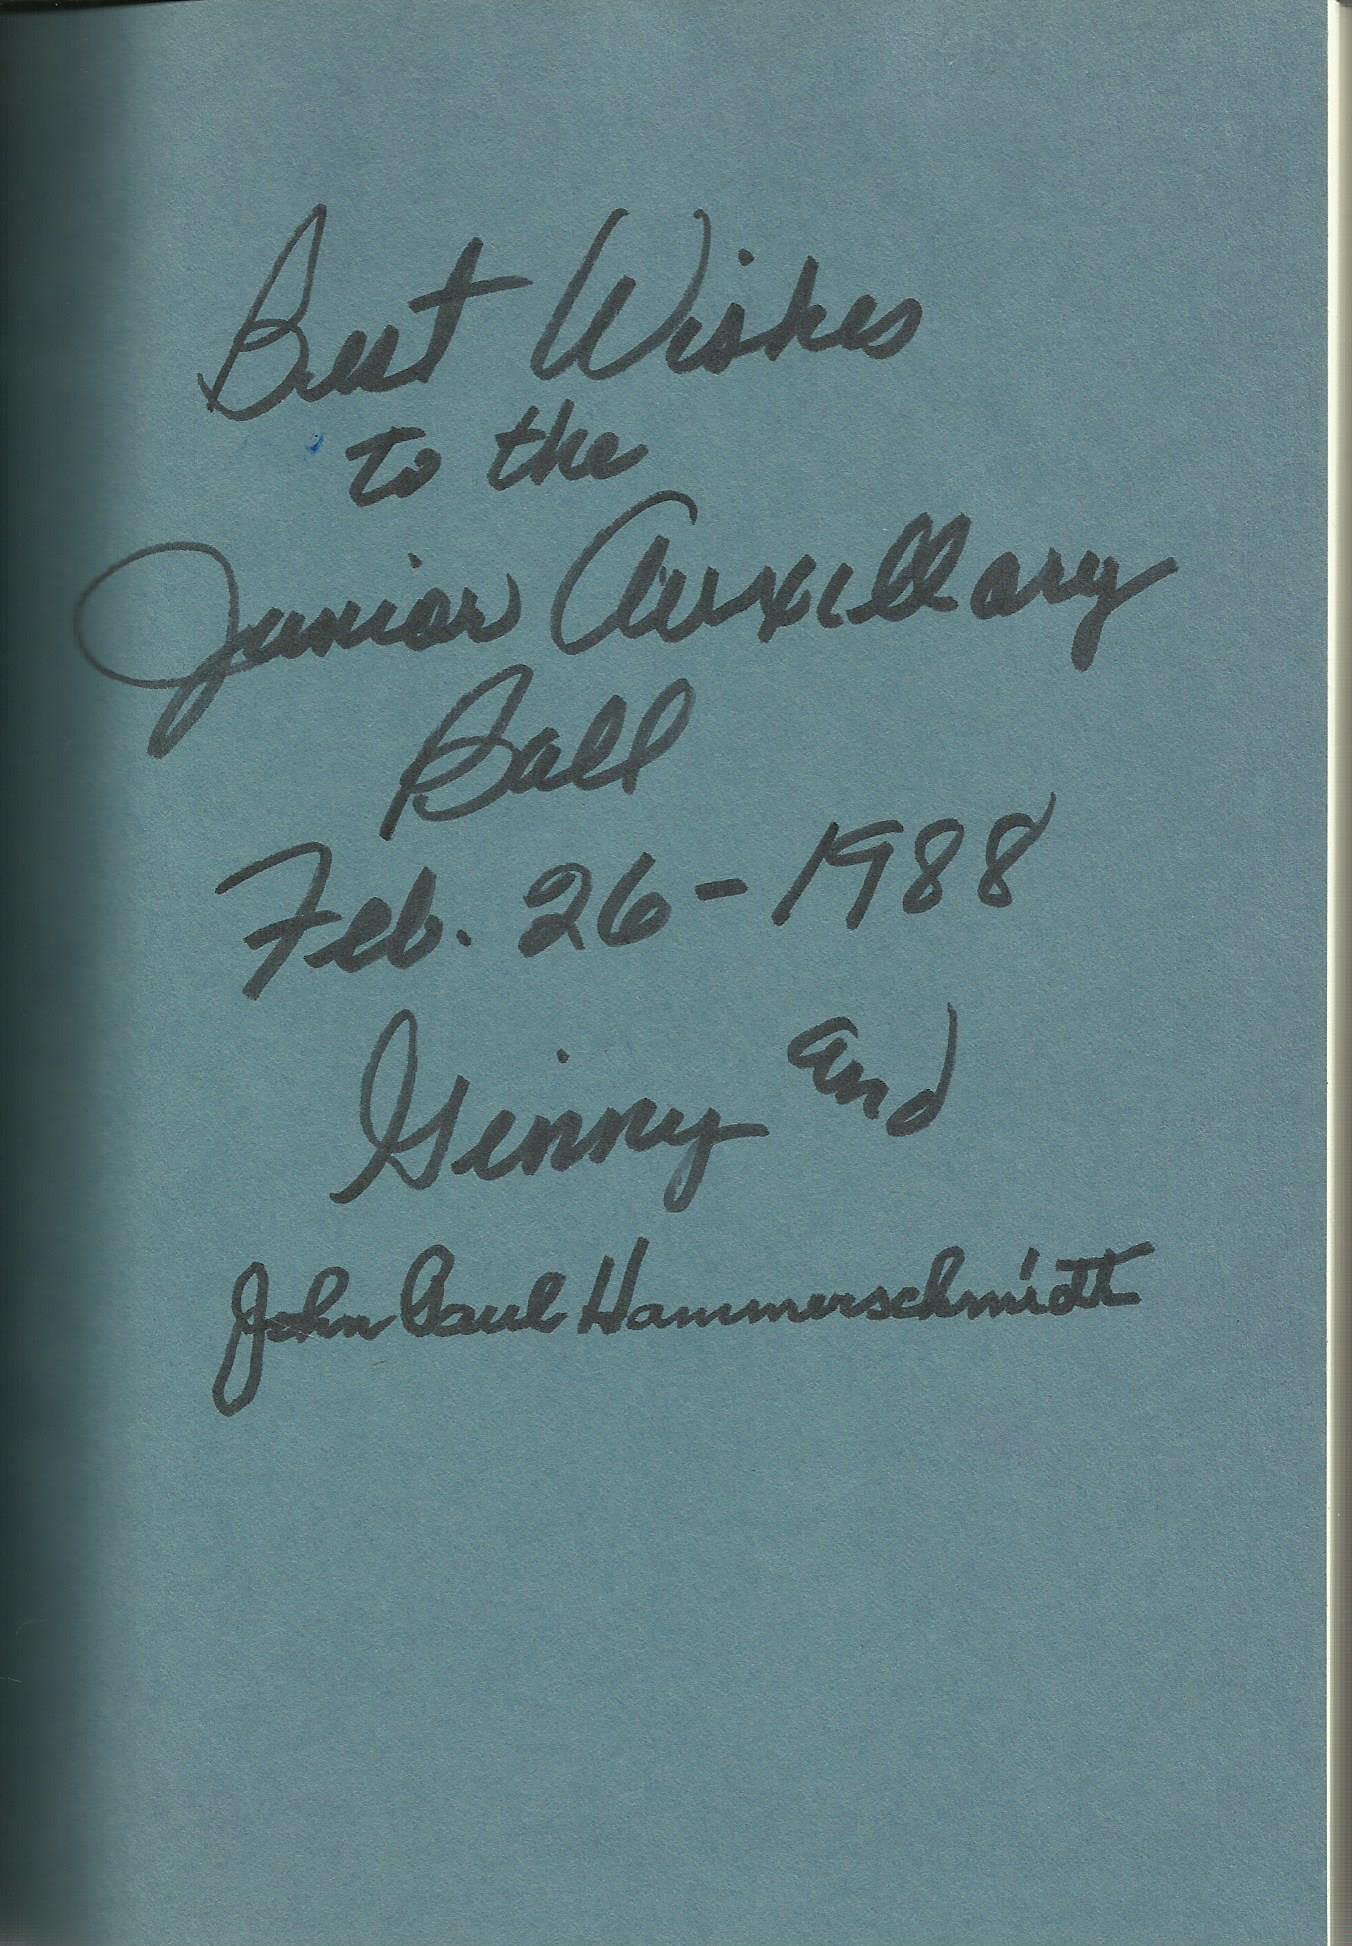 Best Wishes
to the
Junior Auxillary
Ball
Feb. 26-1988
Ginny and
John Paul Hammerschmidt